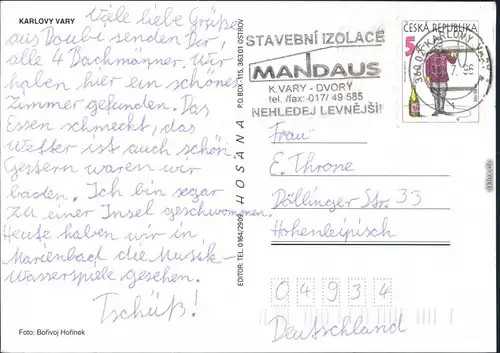 KARLOVY VARY
Viele liebe Grüße
aus Doubi senden Dir
alle 4 Bachmänner. Wir
haben hier ein schönes
Zimmer gefunden. Das
Essen schmeckt, das
Wetter ist auch schön.
Gestern waren wir
baden. Ich bin sogar
zu einer Insel geschwommen.
Heute haben wir in
Marienbad die Musik-
Wasserspiele gesehen.
Tschüß!
Foto: Bořivoj Hořínek
EDITOR: TEL. 0164/2909 HOSANA P.O. BOX 115, 36301 OSTROV
STAVEBNÍ IZOLACE
MANDAUS
K.VARY - DVORY
tel./fax: 017/ 49 585
NEHLEDEJ LEVNĚJŠÍ!
ČESKÁ REPUBLIKA
5
360 05 KARLOVY VARY
Frau
E. Throne
Döllinger Str. 33
Hohenleipisch
04934
Deutschland